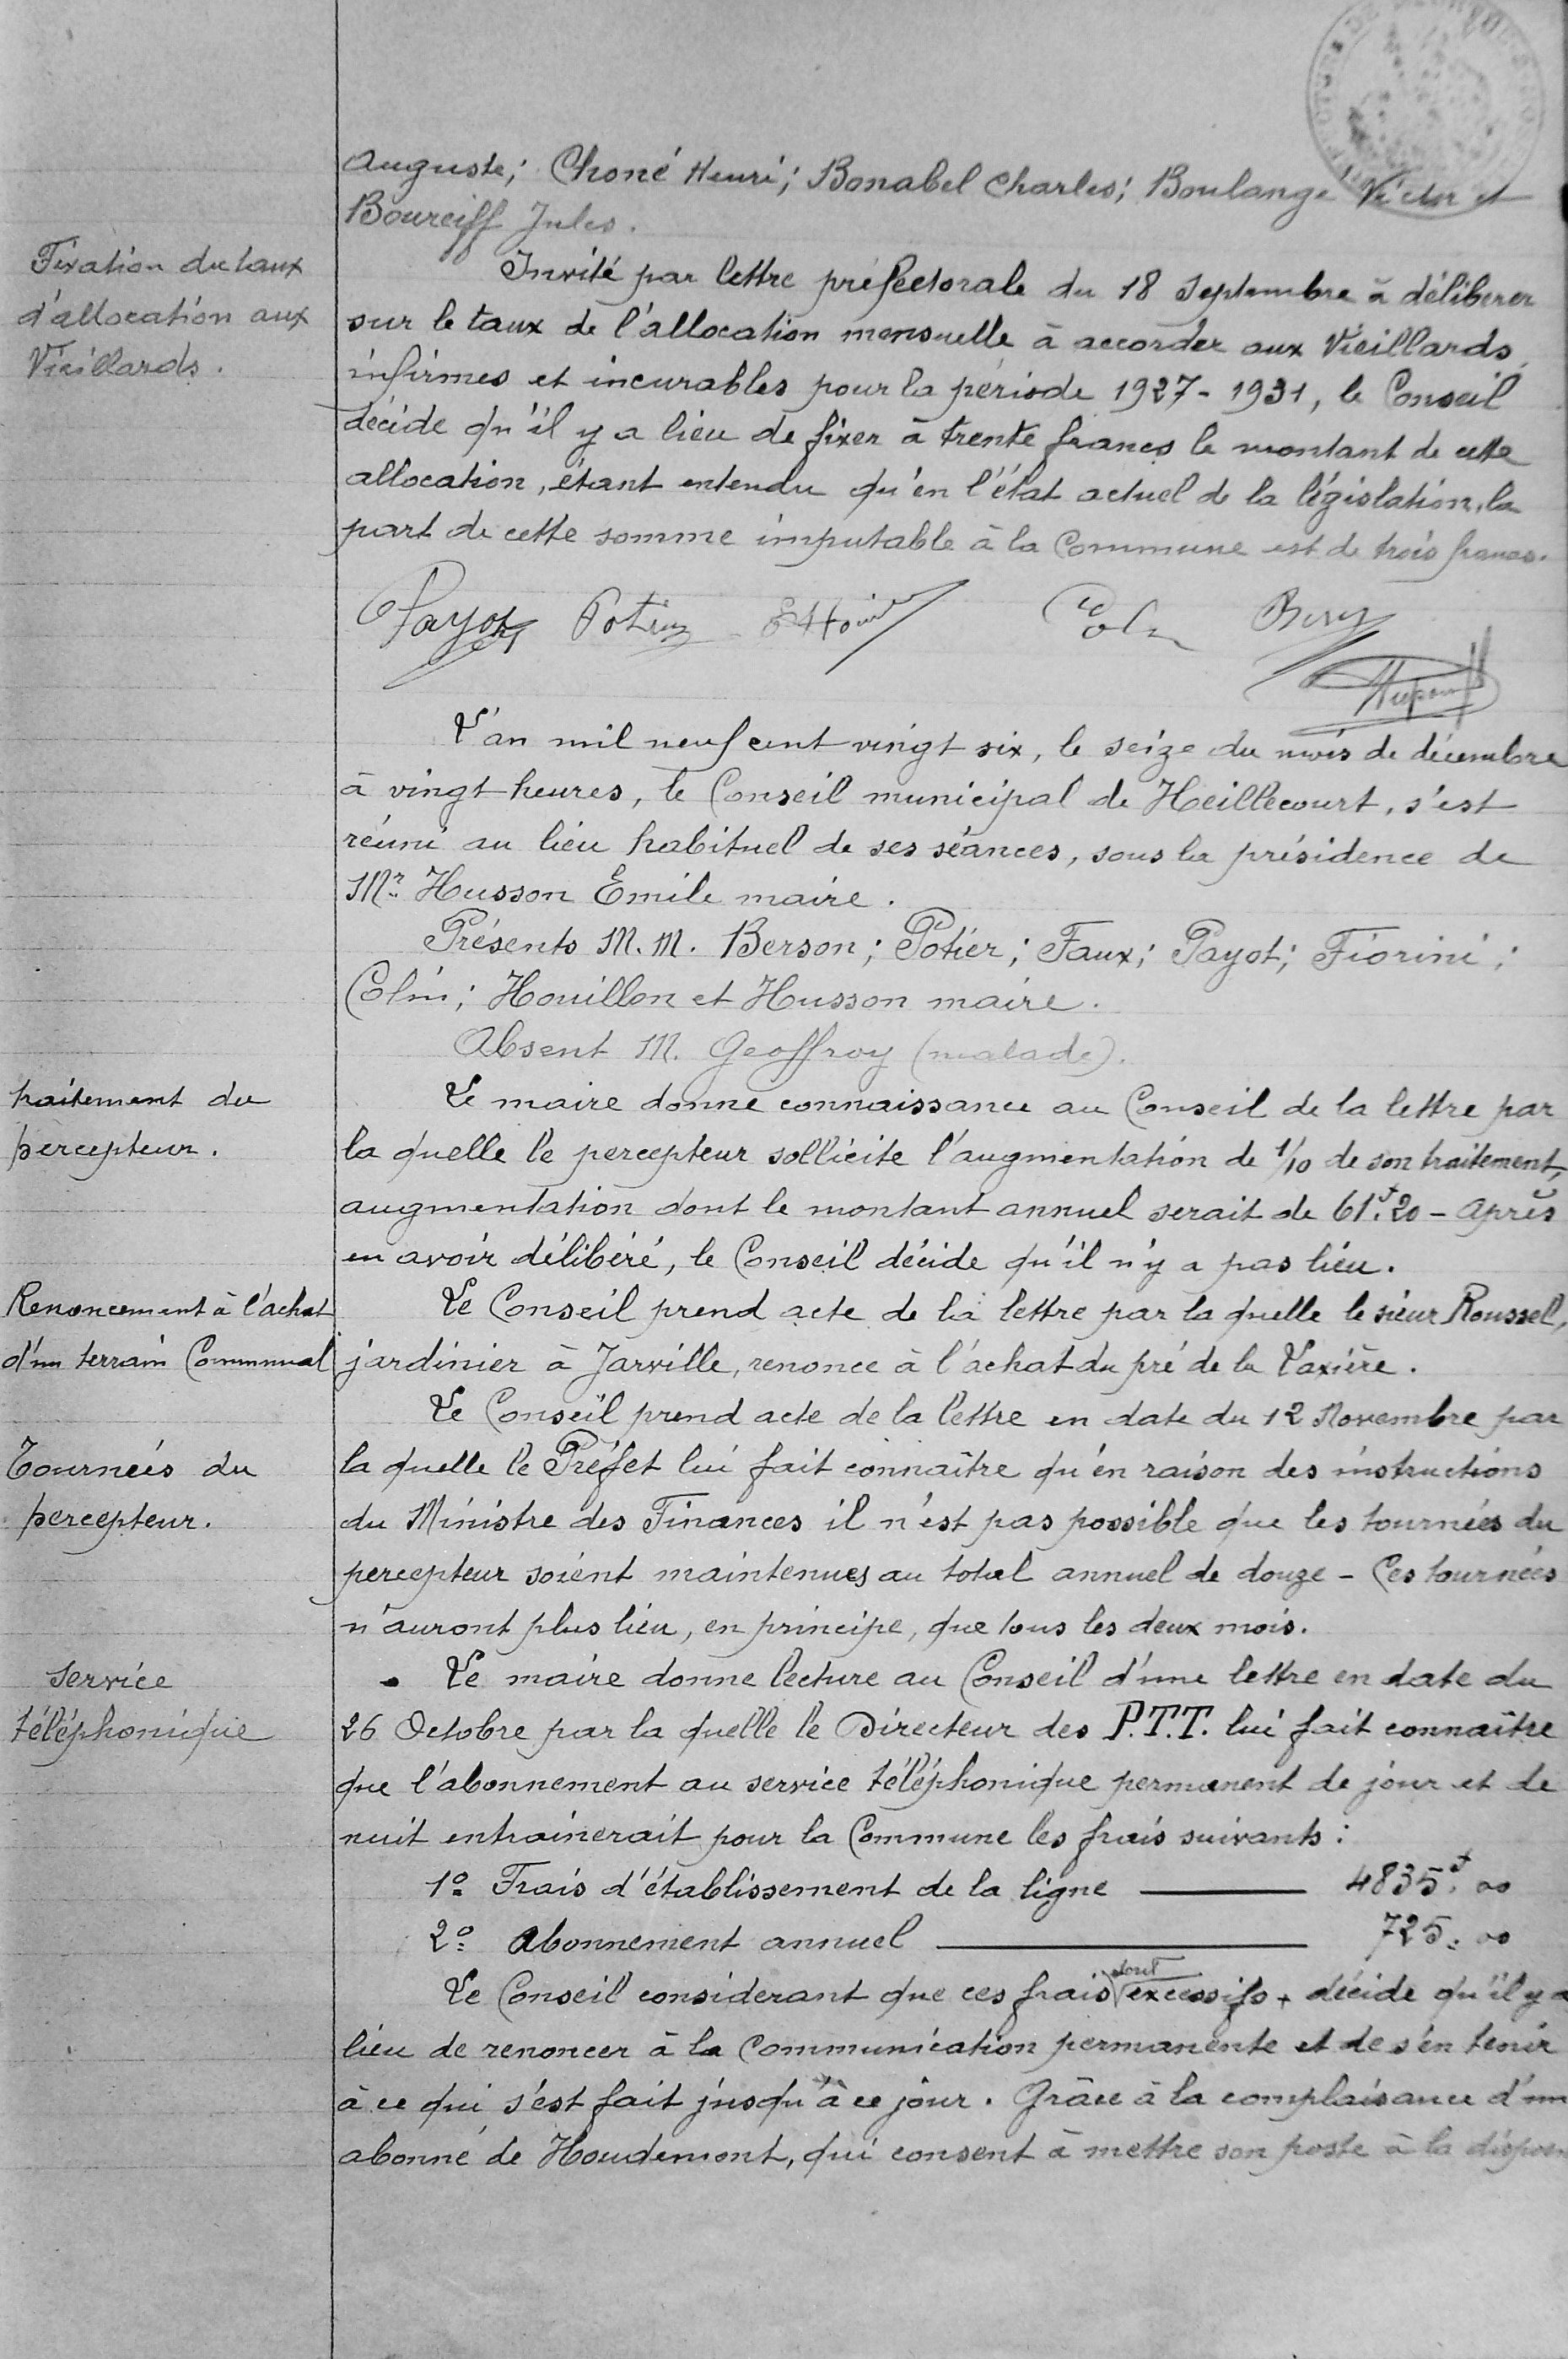 Auguste; Choné Henri; Bonabel Charles; Boulangé Victor et
Bourciff Jules.
Fixation du taux
d'allocation aux
Vieillards.
Invité par lettre préfectorale du 18 Septembre à délibérer
sur le taux de l'allocation mensuelle à accorder aux Vieillards,
infirmes et incurables pour la période 1927-1931, le Conseil
décide qu'il y a lieu de fixer à trente francs le montant de cette
allocation, étant entendu qu'en l'état actuel de la législation, la
part de cette somme imputable à la Commune est de trois francs.
Payot Potier
L'an mil neuf cent vingt six, le seize du mois de décembre
à vingt heures, le Conseil municipal de Heillecourt, s'est
réuni au lieu habituel de ses séances, sous la présidence de
Mr Husson Emile maire.
Présents M.M. Berson; Potier; Faux; Payot; Fiorini;
Colin; Houillon et Husson maire.
Absent M. Geoffroy (malade).
traitement du
percepteur.
Le maire donne connaissance au Conseil de la lettre par
la quelle le percepteur sollicite l'augmentation de 1/10 de son traitement,
augmentation dont le montant annuel serait de 61f.20 - Après
en avoir délibéré, le Conseil décide qu'il n'y a pas lieu.
Renoncement à l'achat
d'un terrain Communal
Le Conseil prend acte de la lettre par la quelle le sieur Roussel,
jardinier à Jarville, renonce à l'achat du pré de la Vaxière.
Tournées du
percepteur.
Le Conseil prend acte de la lettre en date du 12 Novembre par
la quelle le Préfet lui fait connaître qu'en raison des instructions
du Ministre des Finances il n'est pas possible que les tournées du
percepteur soient maintenues au total annuel de douze - Ces tournées
n'auront plus lieu, en principe, que tous les deux mois.
Service
téléphonique
Le maire donne lecture au Conseil d'une lettre en date du
26 Octobre par la quelle le Directeur des P.T.T. lui fait connaître
que l'abonnement au service téléphonique permanent de jour et de
nuit entrainerait pour la Commune les frais suivants :
1º Frais d'établissement de la ligne — 4835f.00
2º Abonnement annuel — 725.00
Le Conseil considerant que ces frais sont excessifs, décide qu'il y a
lieu de renoncer à la communication permanente et de s'en tenir
à ce qui s'est fait jusqu'à ce jour. Grâce à la complaisance d'un
abonné de Houdemont, qui consent à mettre son poste à la dispos